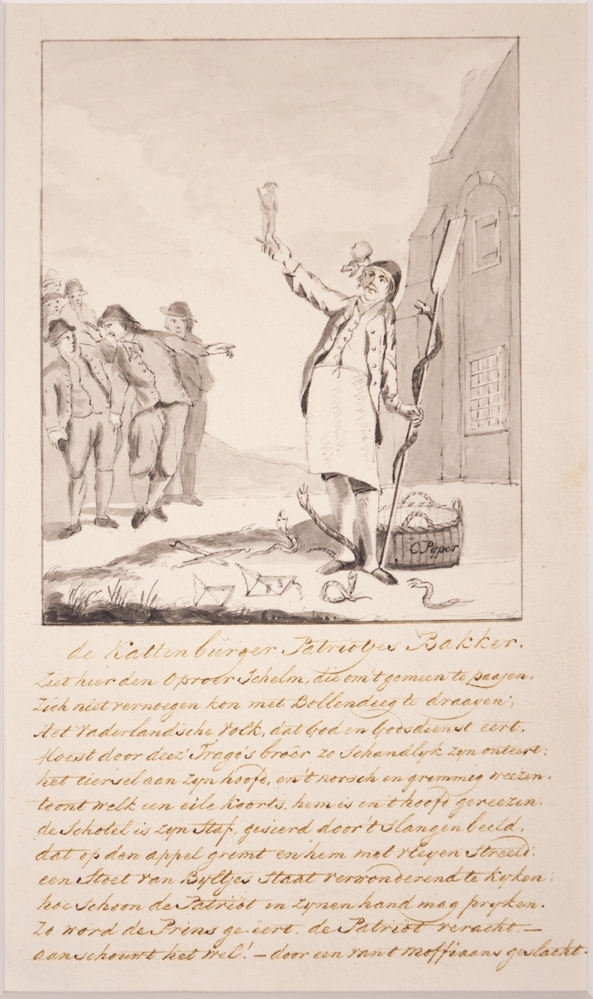 C. Pijper
de Kattenburger Patriotjes Bakker.
Ziet hier den Oproer Schelm, die om't gemeen te paajen,
Zich niet vernoegen kon met Bollendeeg te draayen;
Het vaderlandsche Volk, dat God en Godsdienst eert,
Moest door deez' Trago's broêr zo Schandlyk zyn onteert:
het ciersel aan zyn hoofd, en't norsch en gremmig weezen.
toont welk een eile Koorts, hem is in't hoofd gereezen.
de Schotel is zyn Staf, gesierd door't slangenbeeld,
dat op den appel gremt en hem met vleyen Streeld:
een Stoet van Byltjes Staat verwonderend te kyken:
hoe schoon de Patriöt in zynen hand mag pryken.
Zo word de Prins ge-eert, de Patriöt veracht.—
aanschouwt het wel! — door een van't moffiaans geslacht.